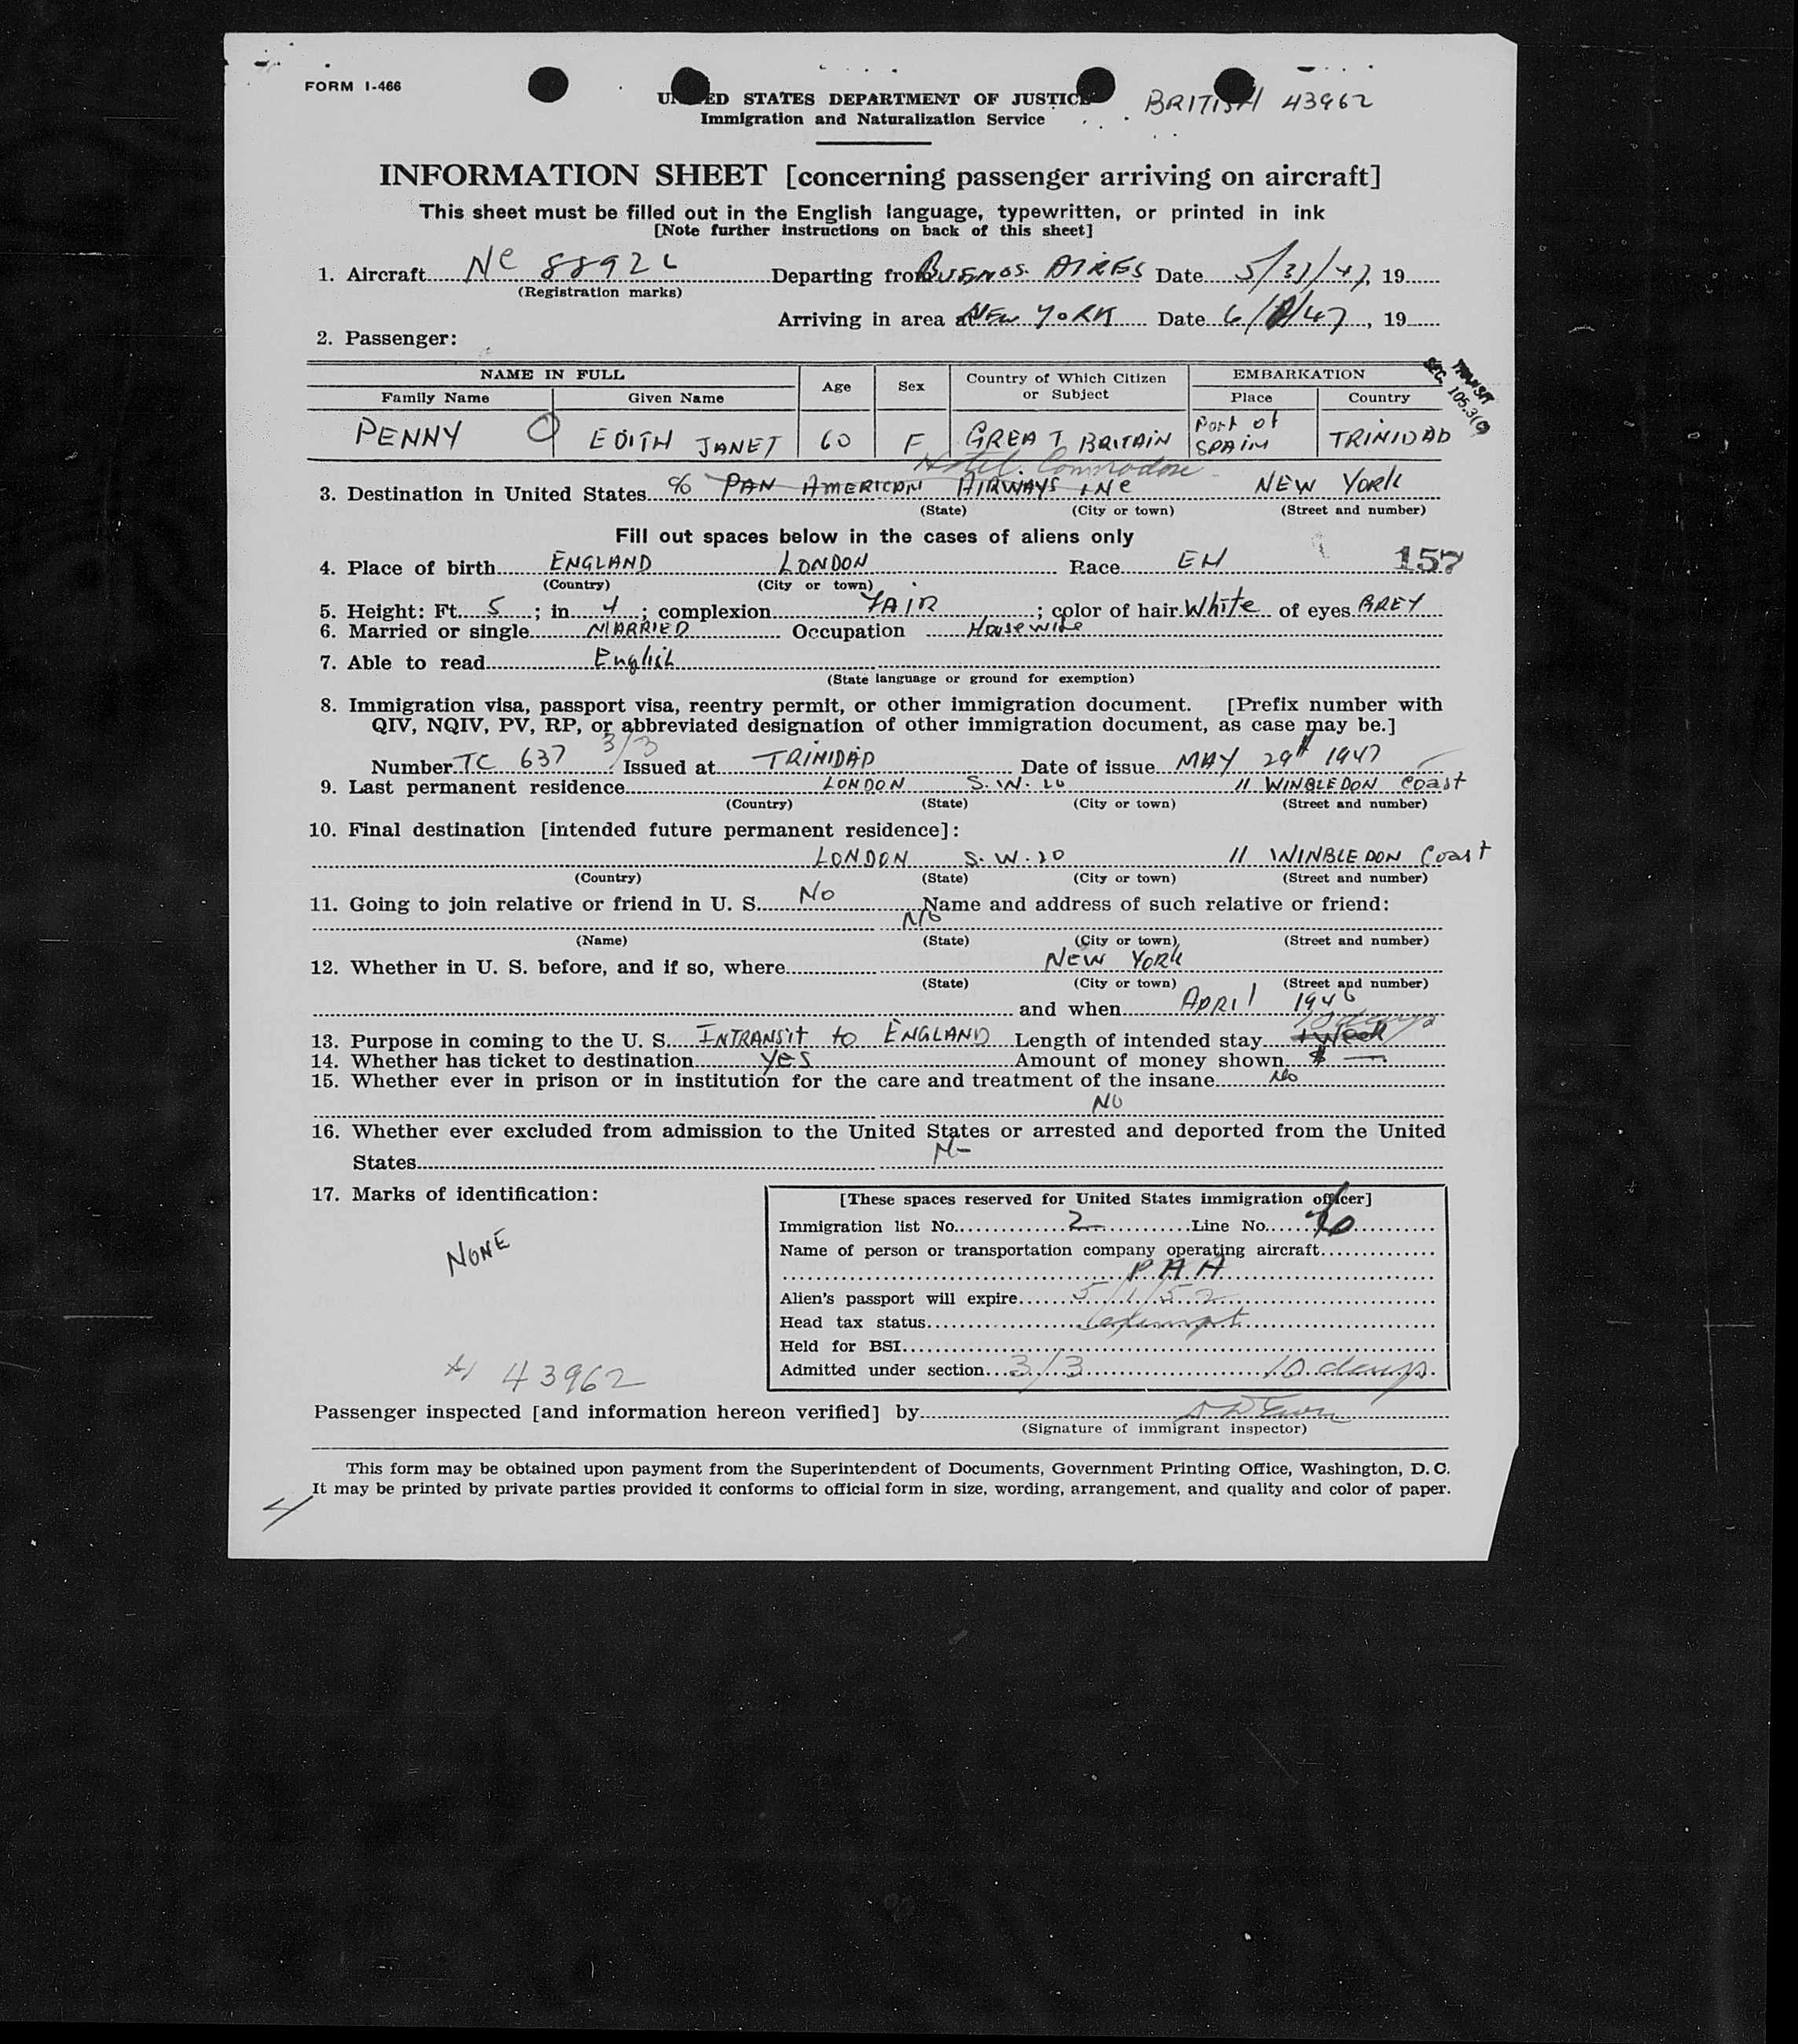 FORM I-466
UNITED STATES DEPARTMENT OF JUSTICE
BRITISH 43962
Immigration and Naturalization Service
INFORMATION SHEET [concerning passenger arriving on aircraft]
This sheet must be filled out in the English language, typewritten, or printed in ink
[Note further instructions on back of this sheet]
1. Aircraft NC 8892 Departing from BUENOS AIRES Date 5/31/47, 19
(Registration marks)
Arriving in area at NEW YORK Date 6/ /47, 19
2. Passenger:
NAME IN FULL Age Sex Country of Which Citizen or Subject EMBARKATION
Family Name Given Name Place Country
TRANSIT
SEC. 105.3(
PENNY EDITH JANET 60 F GREAT BRITAIN Port of SPAIN TRINIDAD
Hotel Commodore
3. Destination in United States % PAN AMERICAN AIRWAYS INC NEW YORK
(State) (City or town) (Street and number)
Fill out spaces below in the cases of aliens only
4. Place of birth ENGLAND LONDON Race EH 157
(Country) (City or town)
5. Height: Ft. 5; in 4; complexion FAIR; color of hair White of eyes GREY
6. Married or single MARRIED Occupation Housewife
7. Able to read English
(State language or ground for exemption)
8. Immigration visa, passport visa, reentry permit, or other immigration document. [Prefix number with
QIV, NQIV, PV, RP, or abbreviated designation of other immigration document, as case may be.]
3/3
Number TC 637 Issued at TRINIDAD Date of issue MAY 29th 1947
9. Last permanent residence LONDON S.W. 20 11 WINBLEDON Coast
(Country) (State) (City or town) (Street and number)
10. Final destination [intended future permanent residence]:
LONDON S.W.20 11 WINBLEDON Coast
(Country) (State) (City or town) (Street and number)
11. Going to join relative or friend in U. S. No Name and address of such relative or friend:
No
(Name) (State) (City or town) (Street and number)
12. Whether in U. S. before, and if so, where NEW YORK
(State) (City or town) (Street and number)
and when APRIl 1946
10 days
13. Purpose in coming to the U. S. INTRANSit to ENGLAND Length of intended stay 1 Week
14. Whether has ticket to destination YES Amount of money shown $ —
15. Whether ever in prison or in institution for the care and treatment of the insane No
NO
16. Whether ever excluded from admission to the United States or arrested and deported from the United
States
17. Marks of identification:
NONE
43962
[These spaces reserved for United States immigration officer]
Immigration list No. 2 Line No.
Name of person or transportation company operating aircraft
P A A
Alien's passport will expire 5/1/52
Head tax status exempt
Held for BSI
Admitted under section 3/3 10 days
Passenger inspected [and information hereon verified] by
(Signature of immigrant inspector)
This form may be obtained upon payment from the Superintendent of Documents, Government Printing Office, Washington, D. C.
It may be printed by private parties provided it conforms to official form in size, wording, arrangement, and quality and color of paper.
4